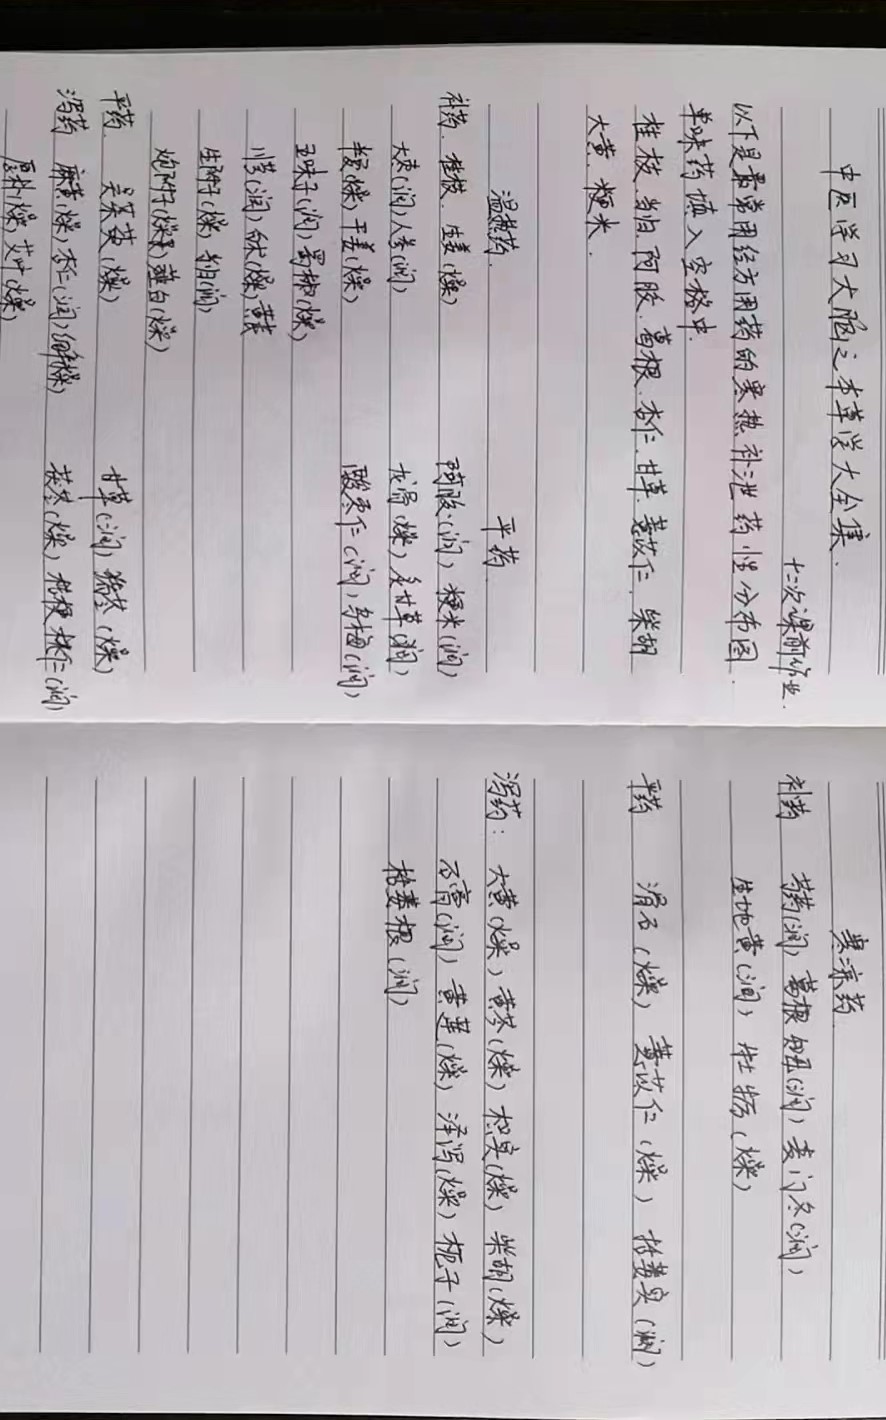 中医学习大脑之本草学大全集.
十二次课前作业.
以下是最常用经方用药的寒热.补泄药性分布图.
单味药填入空格中.
桂枝.当归.阿胶.葛根.杏仁.甘草.薏苡仁.柴胡
大黄.粳米.
温热药. 平药.
补药.桂枝.生姜(燥) 阿胶(润),粳米(润)
大枣(润)人参(润) 龙骨(燥)炙甘草(润),
半夏(燥)干姜(燥) 酸枣仁(润),乌梅(润),
五味子(润)蜀椒(燥)
川芎(润)白术(燥)黄芪
生附子(燥)当归(润)
炮附子(燥)薤白(燥)
平药. 吴茱萸(燥) 甘草(润),猪苓(燥)
泻药 麻黄(燥)杏仁(润)细辛(燥) 茯苓(燥)桔梗.桃仁(润)
厚朴(燥)艾叶(燥)
寒凉药.
补药 芍药(润)葛根 (润)麦门冬(润)
生地黄(润),牡蛎(燥)
平药 滑石(燥)薏苡仁(燥)栝蒌实(润)
泻药: 大黄(燥)黄芩(燥)枳实(燥)柴胡(燥)
石膏(润)黄连(燥)泽泻(燥)栀子(润)
栝蒌根(润)